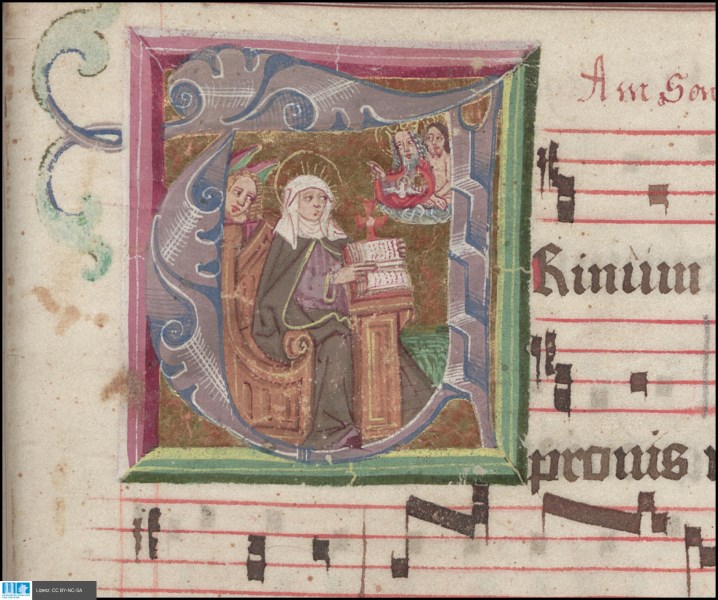 Am Son
Rinum
pronis
Lizenz: CC BY-NC-SA